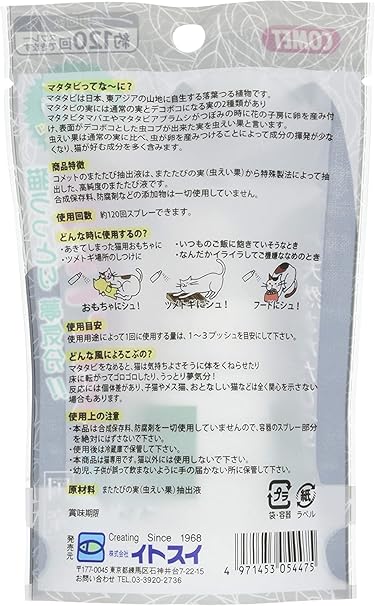 約120回
スプレー
できます
COMET
マタタビってな〜に？
マタタビは日本、東アジアの山地に自生する落葉つる植物です。
マタタビの実には通常の実とデコボコになる実の2種類があり
マタタビタマバエやマタタビアブラムシがつぼみの時に花の子房に卵を産み付
け、表面がデコボコとした虫コブが出来た実を虫えい果と言います。
虫えい果は通常の実に比べ、虫が卵を産みつけることによって成分の揮発が少な
くなり、猫が好む成分を多く含みます。
商品特徴
コメットのまたたび抽出液は、またたびの実(虫えい果)から特殊製法によって抽
出した、高純度のまたたび液です。
合成保存料、防腐剤などの添加物は一切使用していません。
使用回数 約120回スプレーできます。
どんな時に使用するの？
・あきてしまった猫用おもちゃに
・いつものご飯に飽きていそうなとき
・ツメトギ場所のしつけに
・なんだかイライラしてご機嫌ななめのとき
おもちゃにシュ!
ツメトギにシュ!
フードにシュ!
使用目安
使用用途によって1回に使用する量は、1〜3プッシュを目安にして下さい。
どんな風によろこぶの？
マタタビをなめると、猫は気持ちよさそうに体をくねらせたり
床に転がってゴロゴロしたり、うっとり夢気分！
反応には個体差があり、子猫やメス猫、おとなしい猫などは全く関心を示さない
場合もあります。
使用上の注意
・本品は合成保存料、防腐剤を一切使用していませんので、容器のスプレー部分
を絶対にはずさないで下さい。
・使用後は冷蔵庫で保管して下さい。
・本商品は猫専用です。猫以外には使用しないで下さい。
・幼児、子供が誤って飲まないように手の届かない所に保管して下さい。
原材料 またたびの実(虫えい果)抽出液
賞味期限
プラ
袋・容器
紙
ラベル
発売元
Creating Since 1968
株式会社 イトスイ
〒177-0045 東京都練馬区石神井台7-22-15
お問い合わせ TEL 03-3920-2736
4 971453 054475